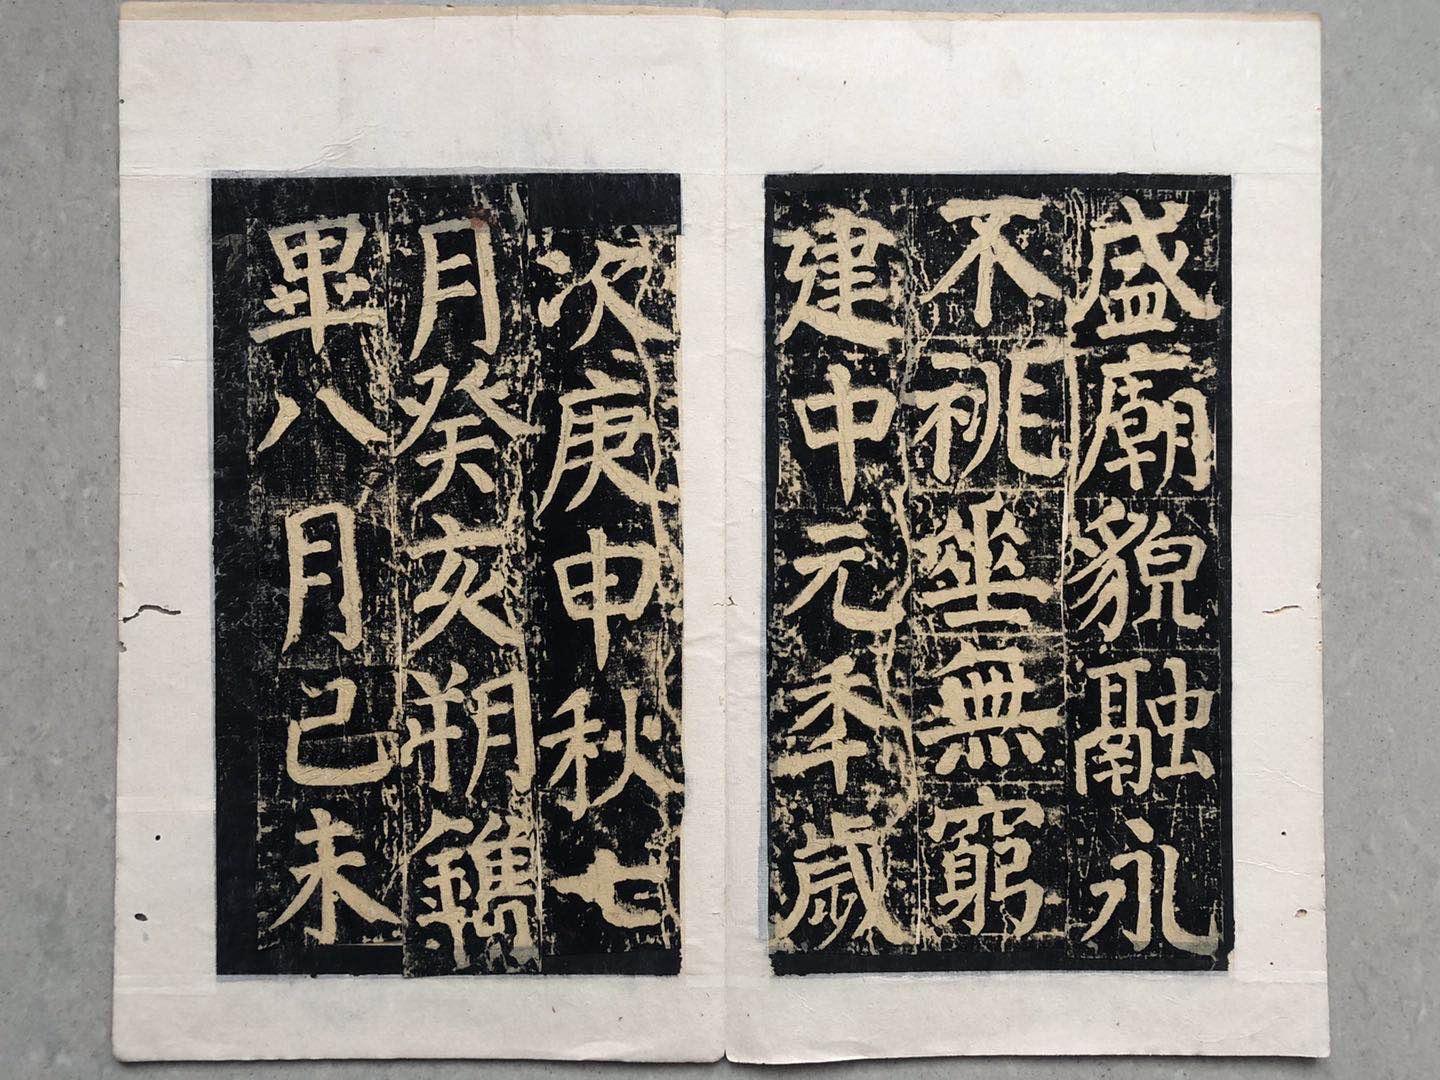 盛廟貌融永
不祧坐無窮
建中元年歲
次庚申秋七
月癸亥朔鐫
畢八月己未